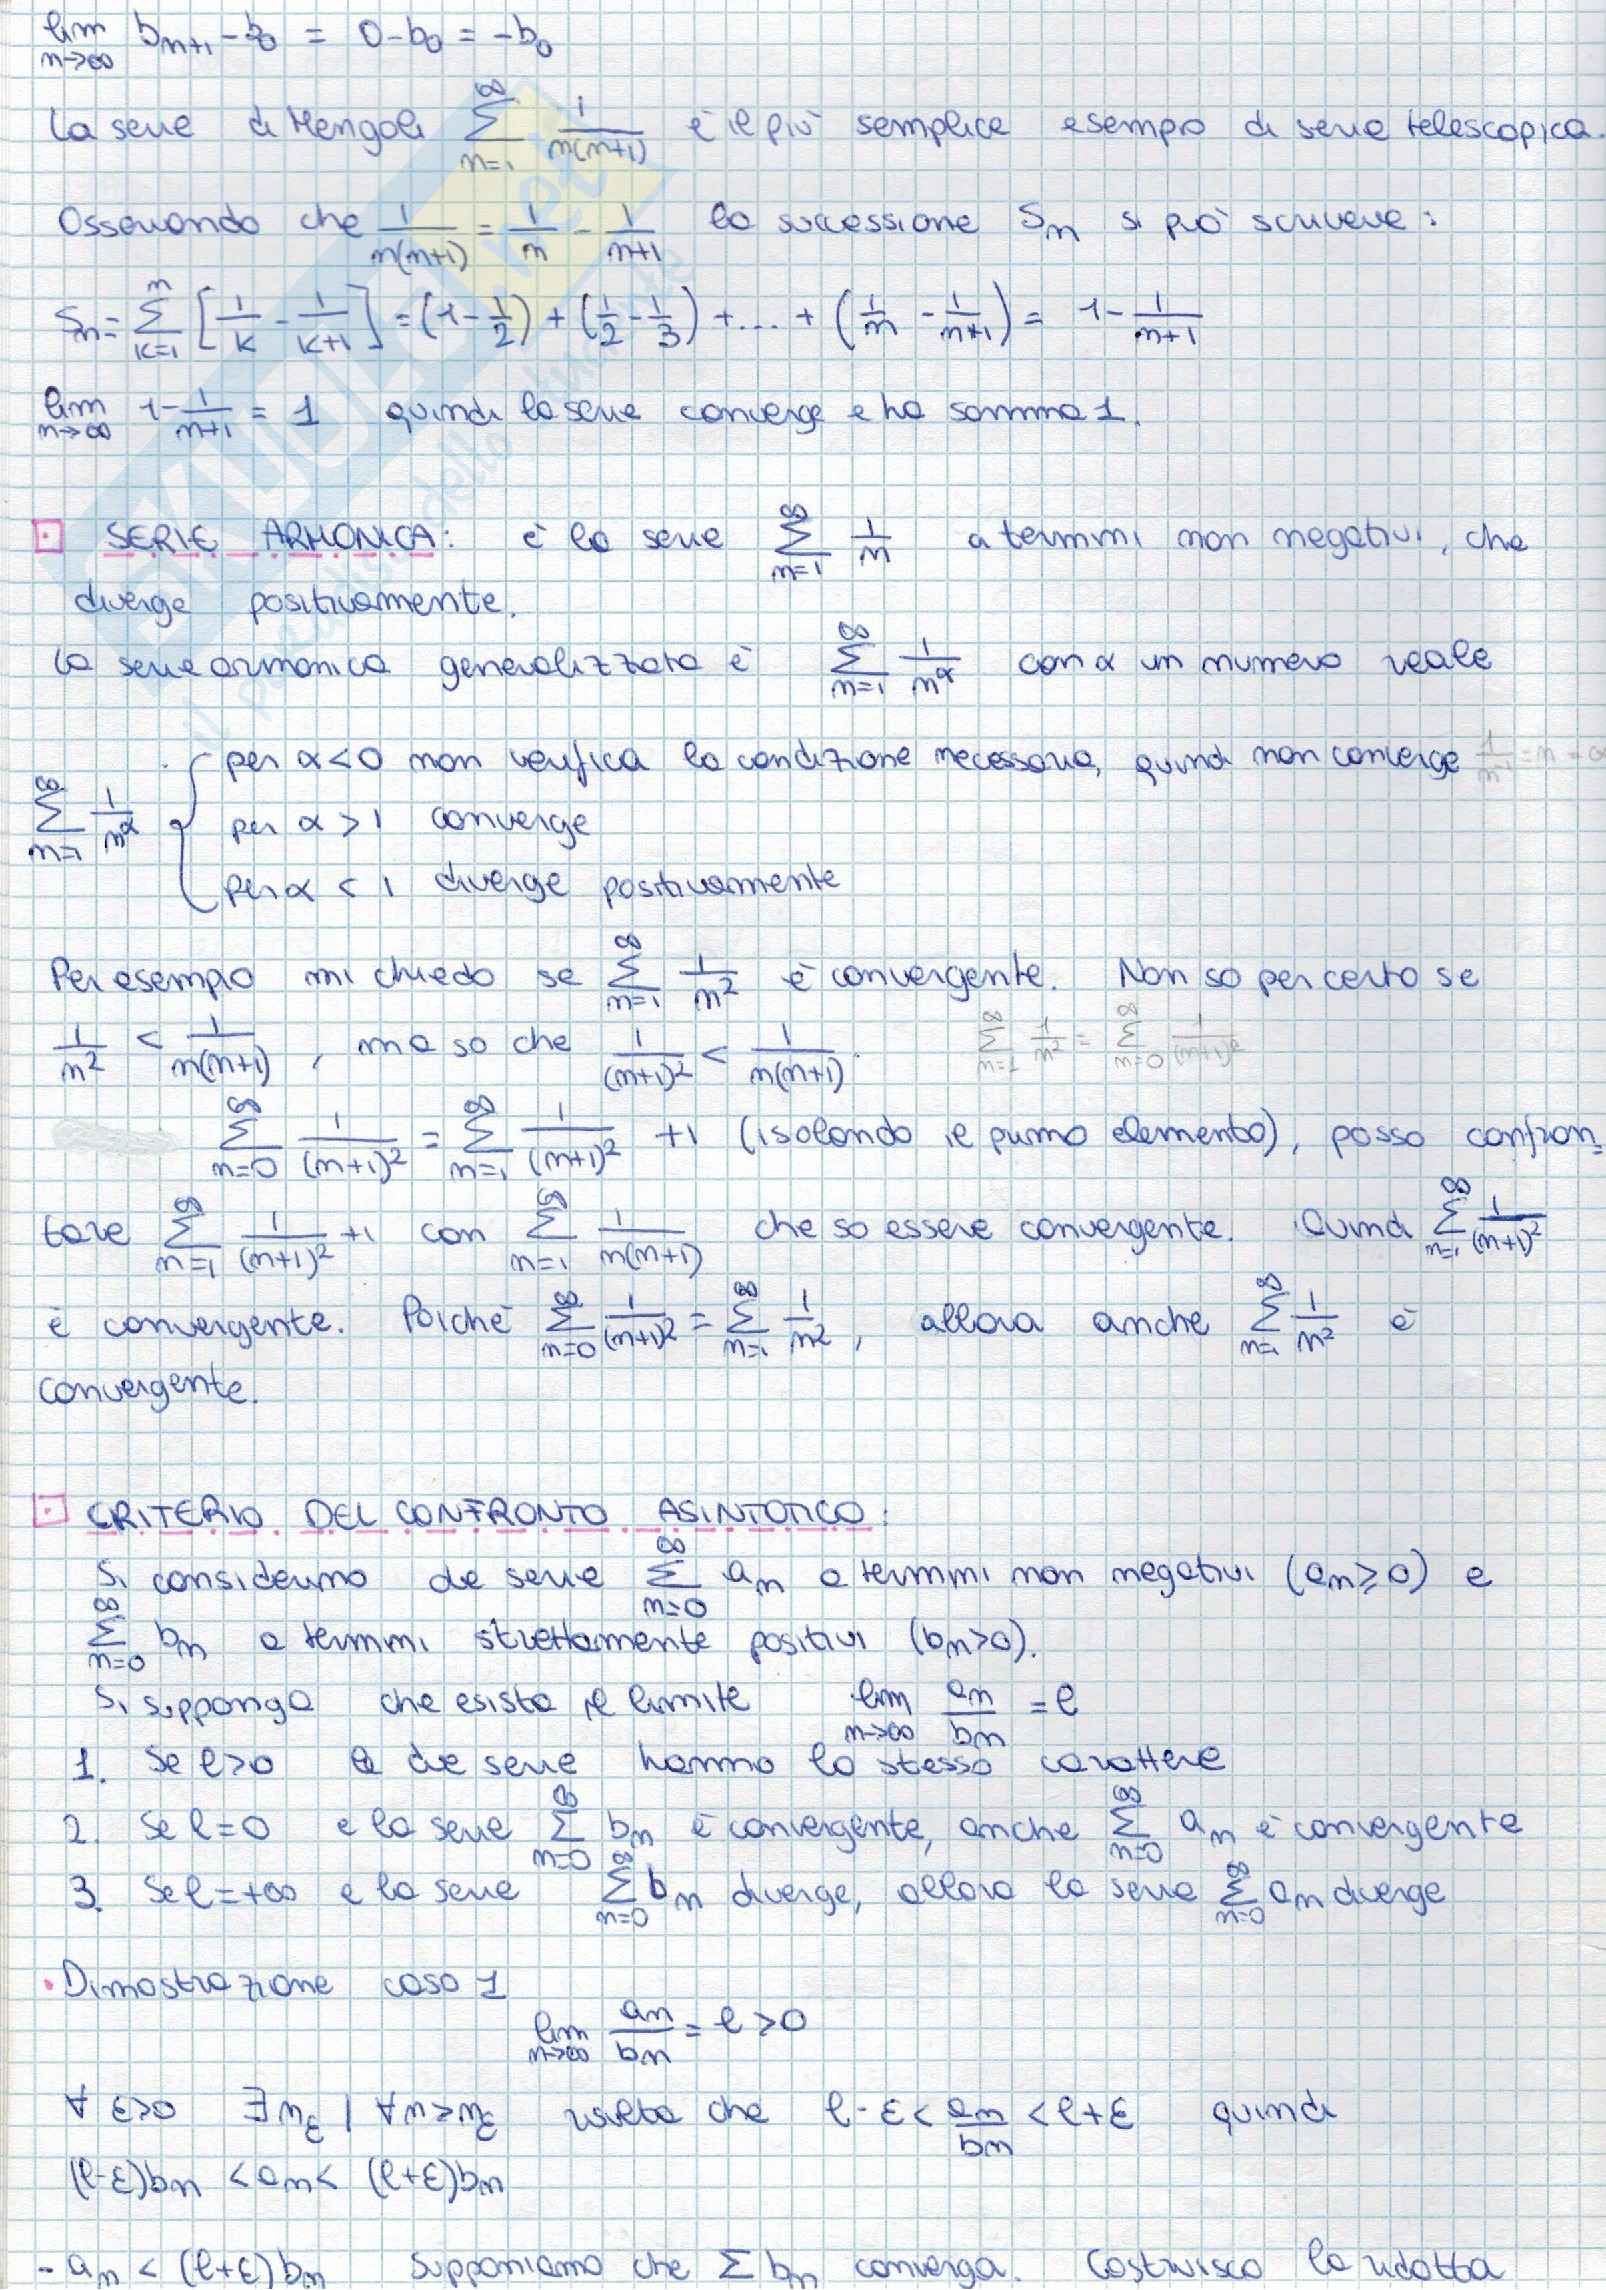 lim_{n→∞} b_{n+1} - b_0 = 0 - b_0 = -b_0
La serie di Mengoli ∑_{n=1}^{∞} 1/(n(n+1)) è il più semplice esempio di serie telescopica.
Osservando che 1/(n(n+1)) = 1/n - 1/(n+1) la successione S_n si può scrivere:
S_n = ∑_{k=1}^{n} [1/k - 1/(k+1)] = (1 - 1/2) + (1/2 - 1/3) + ... + (1/n - 1/(n+1)) = 1 - 1/(n+1)
lim_{n→∞} 1 - 1/(n+1) = 1 quindi la serie converge e ha somma 1.
SERIE ARMONICA: è la serie ∑_{n=1}^{∞} 1/n a termini non negativi, che
diverge positivamente.
La serie armonica generalizzata è ∑_{n=1}^{∞} 1/n^α con α un numero reale
per α < 0 non verifica la condizione necessaria, quindi non converge
∑_{n=1}^{∞} 1/n^α { per α > 1 converge
per α < 1 diverge positivamente
Per esempio mi chiedo se ∑_{n=1}^{∞} 1/n² è convergente. Non so per certo se
1/n² < 1/(n(n+1)), ma so che 1/(n+1)² < 1/(n(n+1)). ∑_{n=1}^{∞} 1/n² = ∑_{n=0}^{∞} 1/(n+1)²
∑_{n=0}^{∞} 1/(n+1)² = ∑_{n=1}^{∞} 1/(n+1)² + 1 (isolando il primo elemento), posso confron=
tare ∑_{n=1}^{∞} 1/(n+1)² + 1 con ∑_{n=1}^{∞} 1/(n(n+1)) che so essere convergente. Quindi ∑_{n=1}^{∞} 1/(n+1)²
è convergente. Poiché ∑_{n=0}^{∞} 1/(n+1)² = ∑_{n=1}^{∞} 1/n², allora anche ∑_{n=1}^{∞} 1/n² è
convergente.
CRITERIO DEL CONFRONTO ASINTOTICO:
Si considerino due serie ∑_{n=0}^{∞} a_n a termini non negativi (a_n ≥ 0) e
∑_{n=0}^{∞} b_n a termini strettamente positivi (b_n > 0).
Si supponga che esista il limite lim_{n→∞} a_n/b_n = l
1. Se l > 0 le due serie hanno lo stesso carattere
2. Se l = 0 e la serie ∑_{n=0}^{∞} b_n è convergente, anche ∑_{n=0}^{∞} a_n è convergente
3. Se l = +∞ e la serie ∑_{n=0}^{∞} b_n diverge, allora la serie ∑_{n=0}^{∞} a_n diverge
• Dimostrazione caso 1
lim_{n→∞} a_n/b_n = l > 0
∀ ε > 0 ∃ n_ε | ∀ n > n_ε risulta che l - ε < a_n/b_n < l + ε quindi
(l-ε)b_n < a_n < (l+ε)b_n
- a_n < (l+ε)b_n Supponiamo che ∑ b_n converga. Costruisco la ridotta